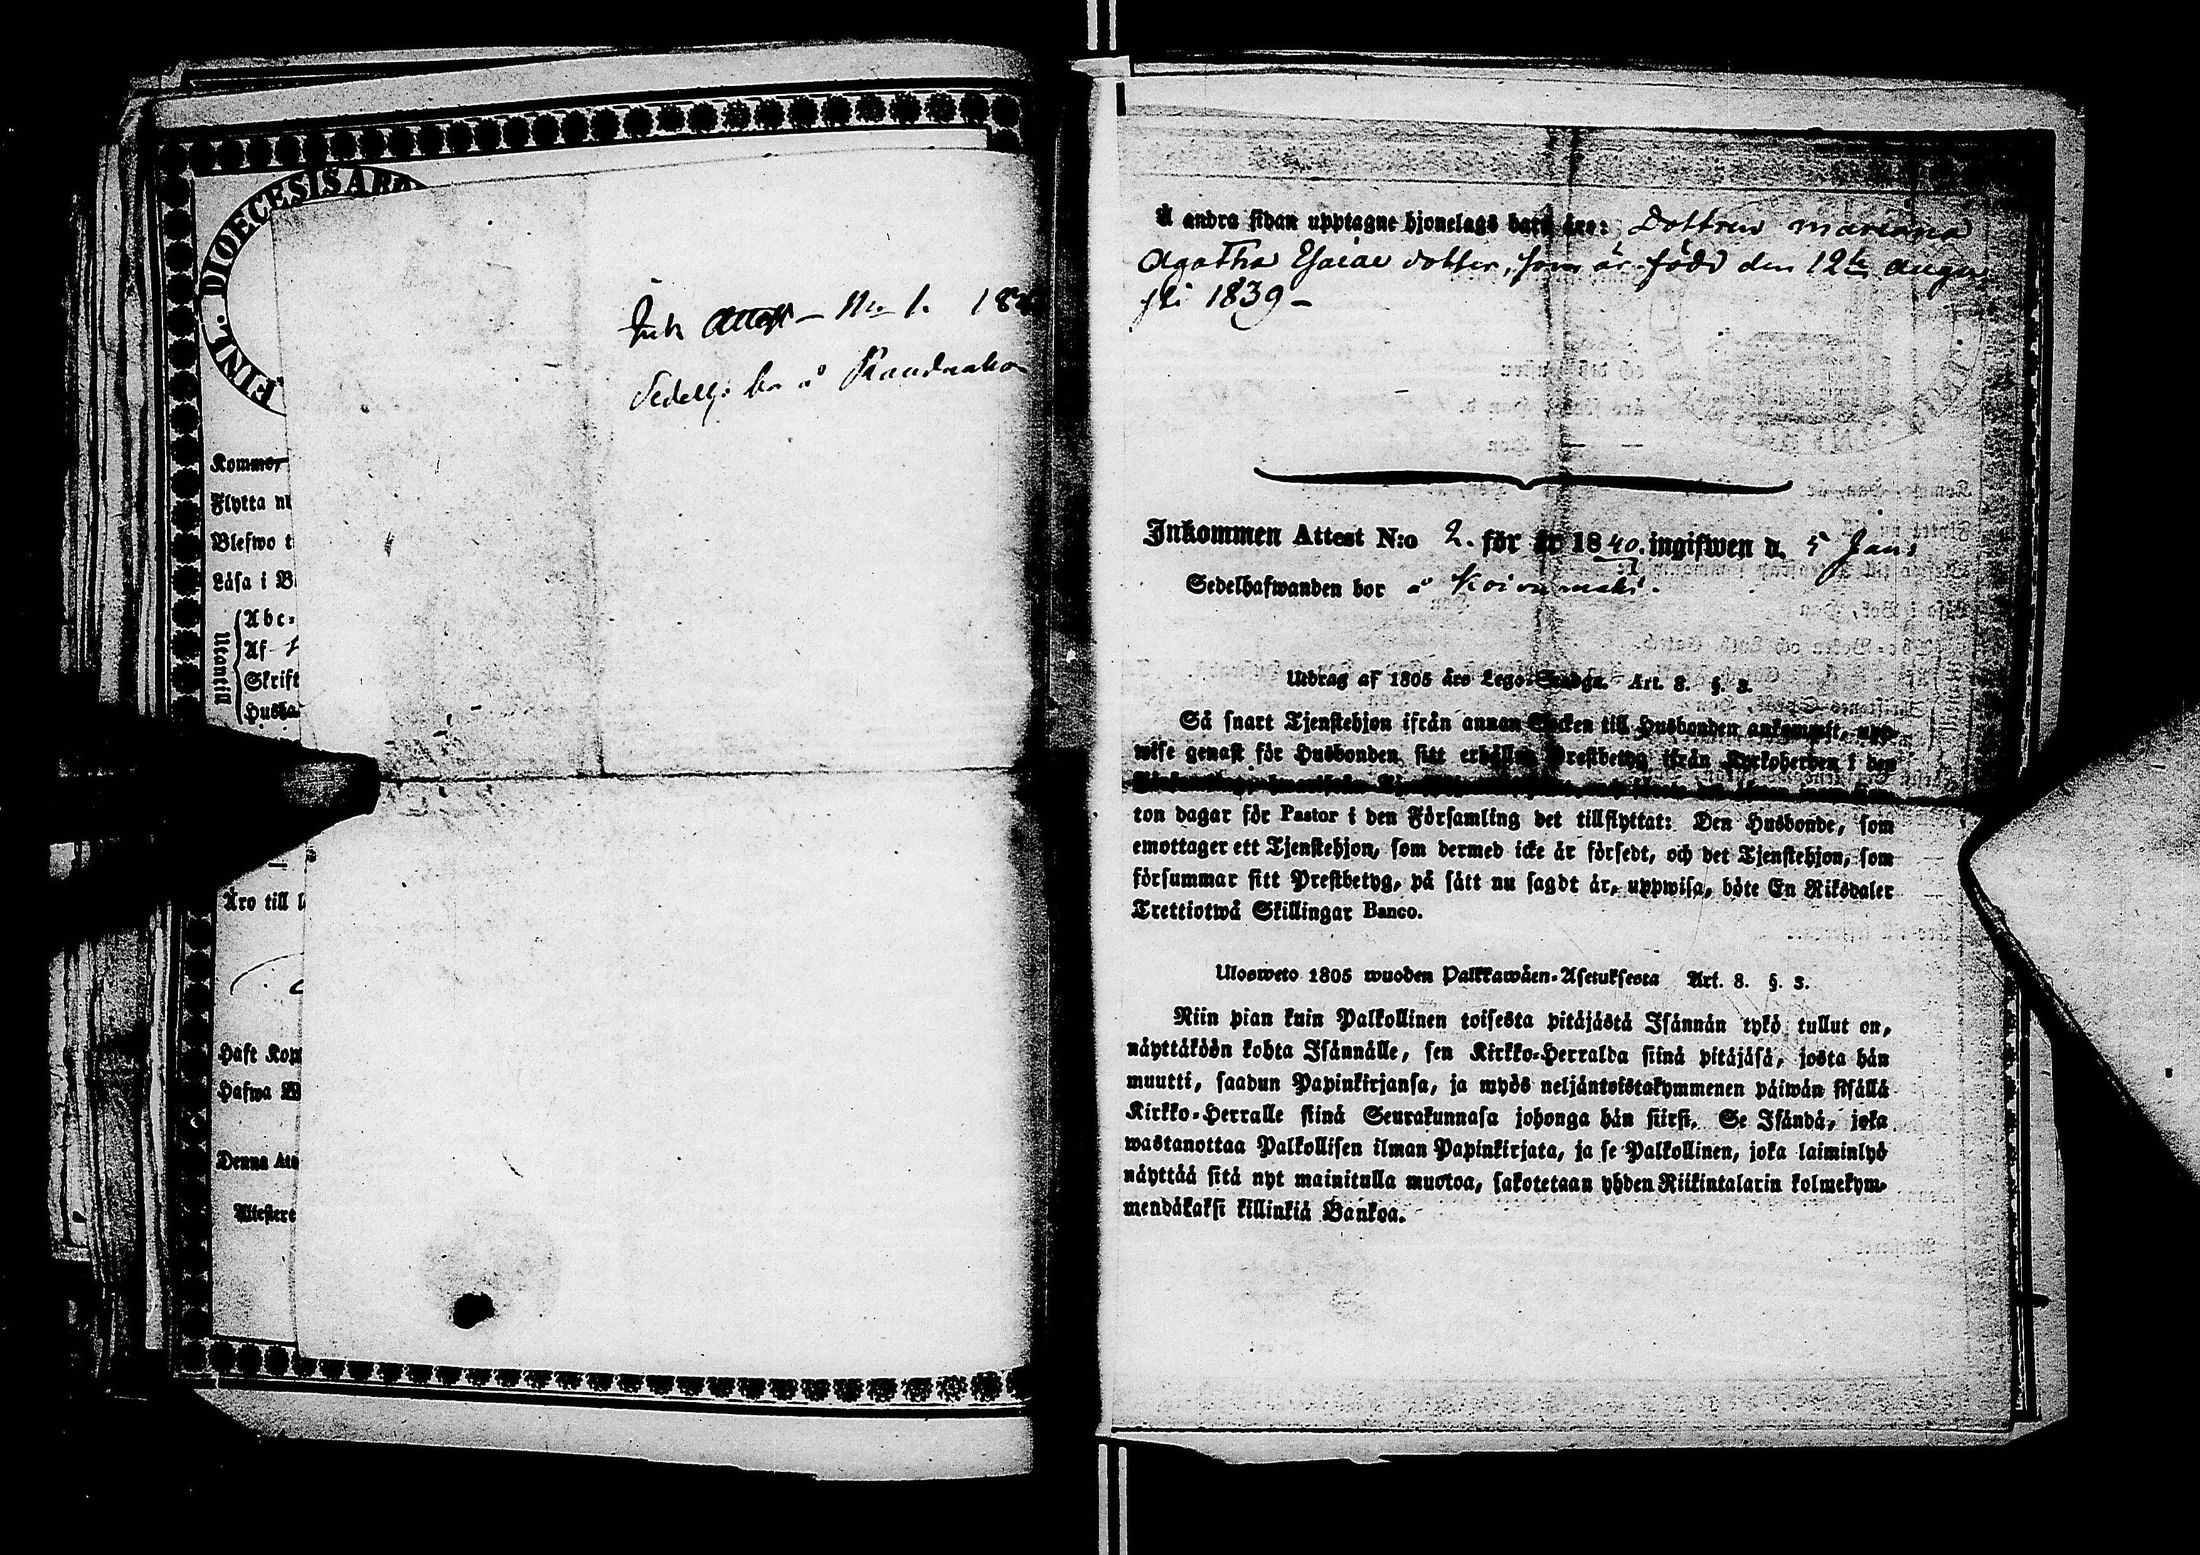 FINL. DIOECESIS ABO
Ink Attest - No 1. 18
Sedelh: bor å
Kommer
Flytta nu
Blefwo
Läsa i B
Utontill
Abc-
Af
Skrift
Husta
Äro till
Haft Kop
Hafwa
Denna
Attestere
Å andra sidan upptagne hjonelags barn äro: Dottren Mariana
Agatha Esaiae dotter, som är född den 12te Augu
sti 1839 –
Inkommen Attest N:o 2. för år 1840. ingifwen d. 5 Jan:
Sedelhafwanden bor å Koivumäki.
Utdrag af 1805 års Lego-Stadga. Art. 8. §. 3.
Så snart Tjenstehjon ifrån annan Socken till Husbonden ankommit, upp-
wise genast för Husbonden sitt erhållna Prestbetyg ifrån Kyrkoherden i den
ton dagar för Pastor i den Församling det tillflyttat: Den Husbonde, som
emottager ett Tjenstehjon, som dermed icke är försedt, och det Tjenstehjon, som
försummar sitt Prestbetyg, på sätt nu sagdt är, uppwisa, böte En Riksdaler
Trettiotwå Skillingar Banco.
Ulosweto 1805 wuoden Palkkawäen-Asetuksesta Art. 8. §. 3.
Niin pian kuin Palkollinen toisesta pitäjästä Isännän tykö tullut on,
näyttäköön kohta Isännälle, sen Kirkko-Herralda siinä pitäjäsä, josta hän
muutti, saadun Papinkirjansa, ja myös neljäntoistakymmenen päiwän sisällä
Kirkko-Herralle siinä Seurakunnasa johonga hän siirsi. Se Isändä, joka
wastanottaa Palkollisen ilman Papinkirjata, ja se Palkollinen, joka laiminlyö
näyttää sitä nyt mainitulla muotoa, sakotetaan yhden Riikintalarin kolmekym-
mendäkaksi killinkiä Bankoa.